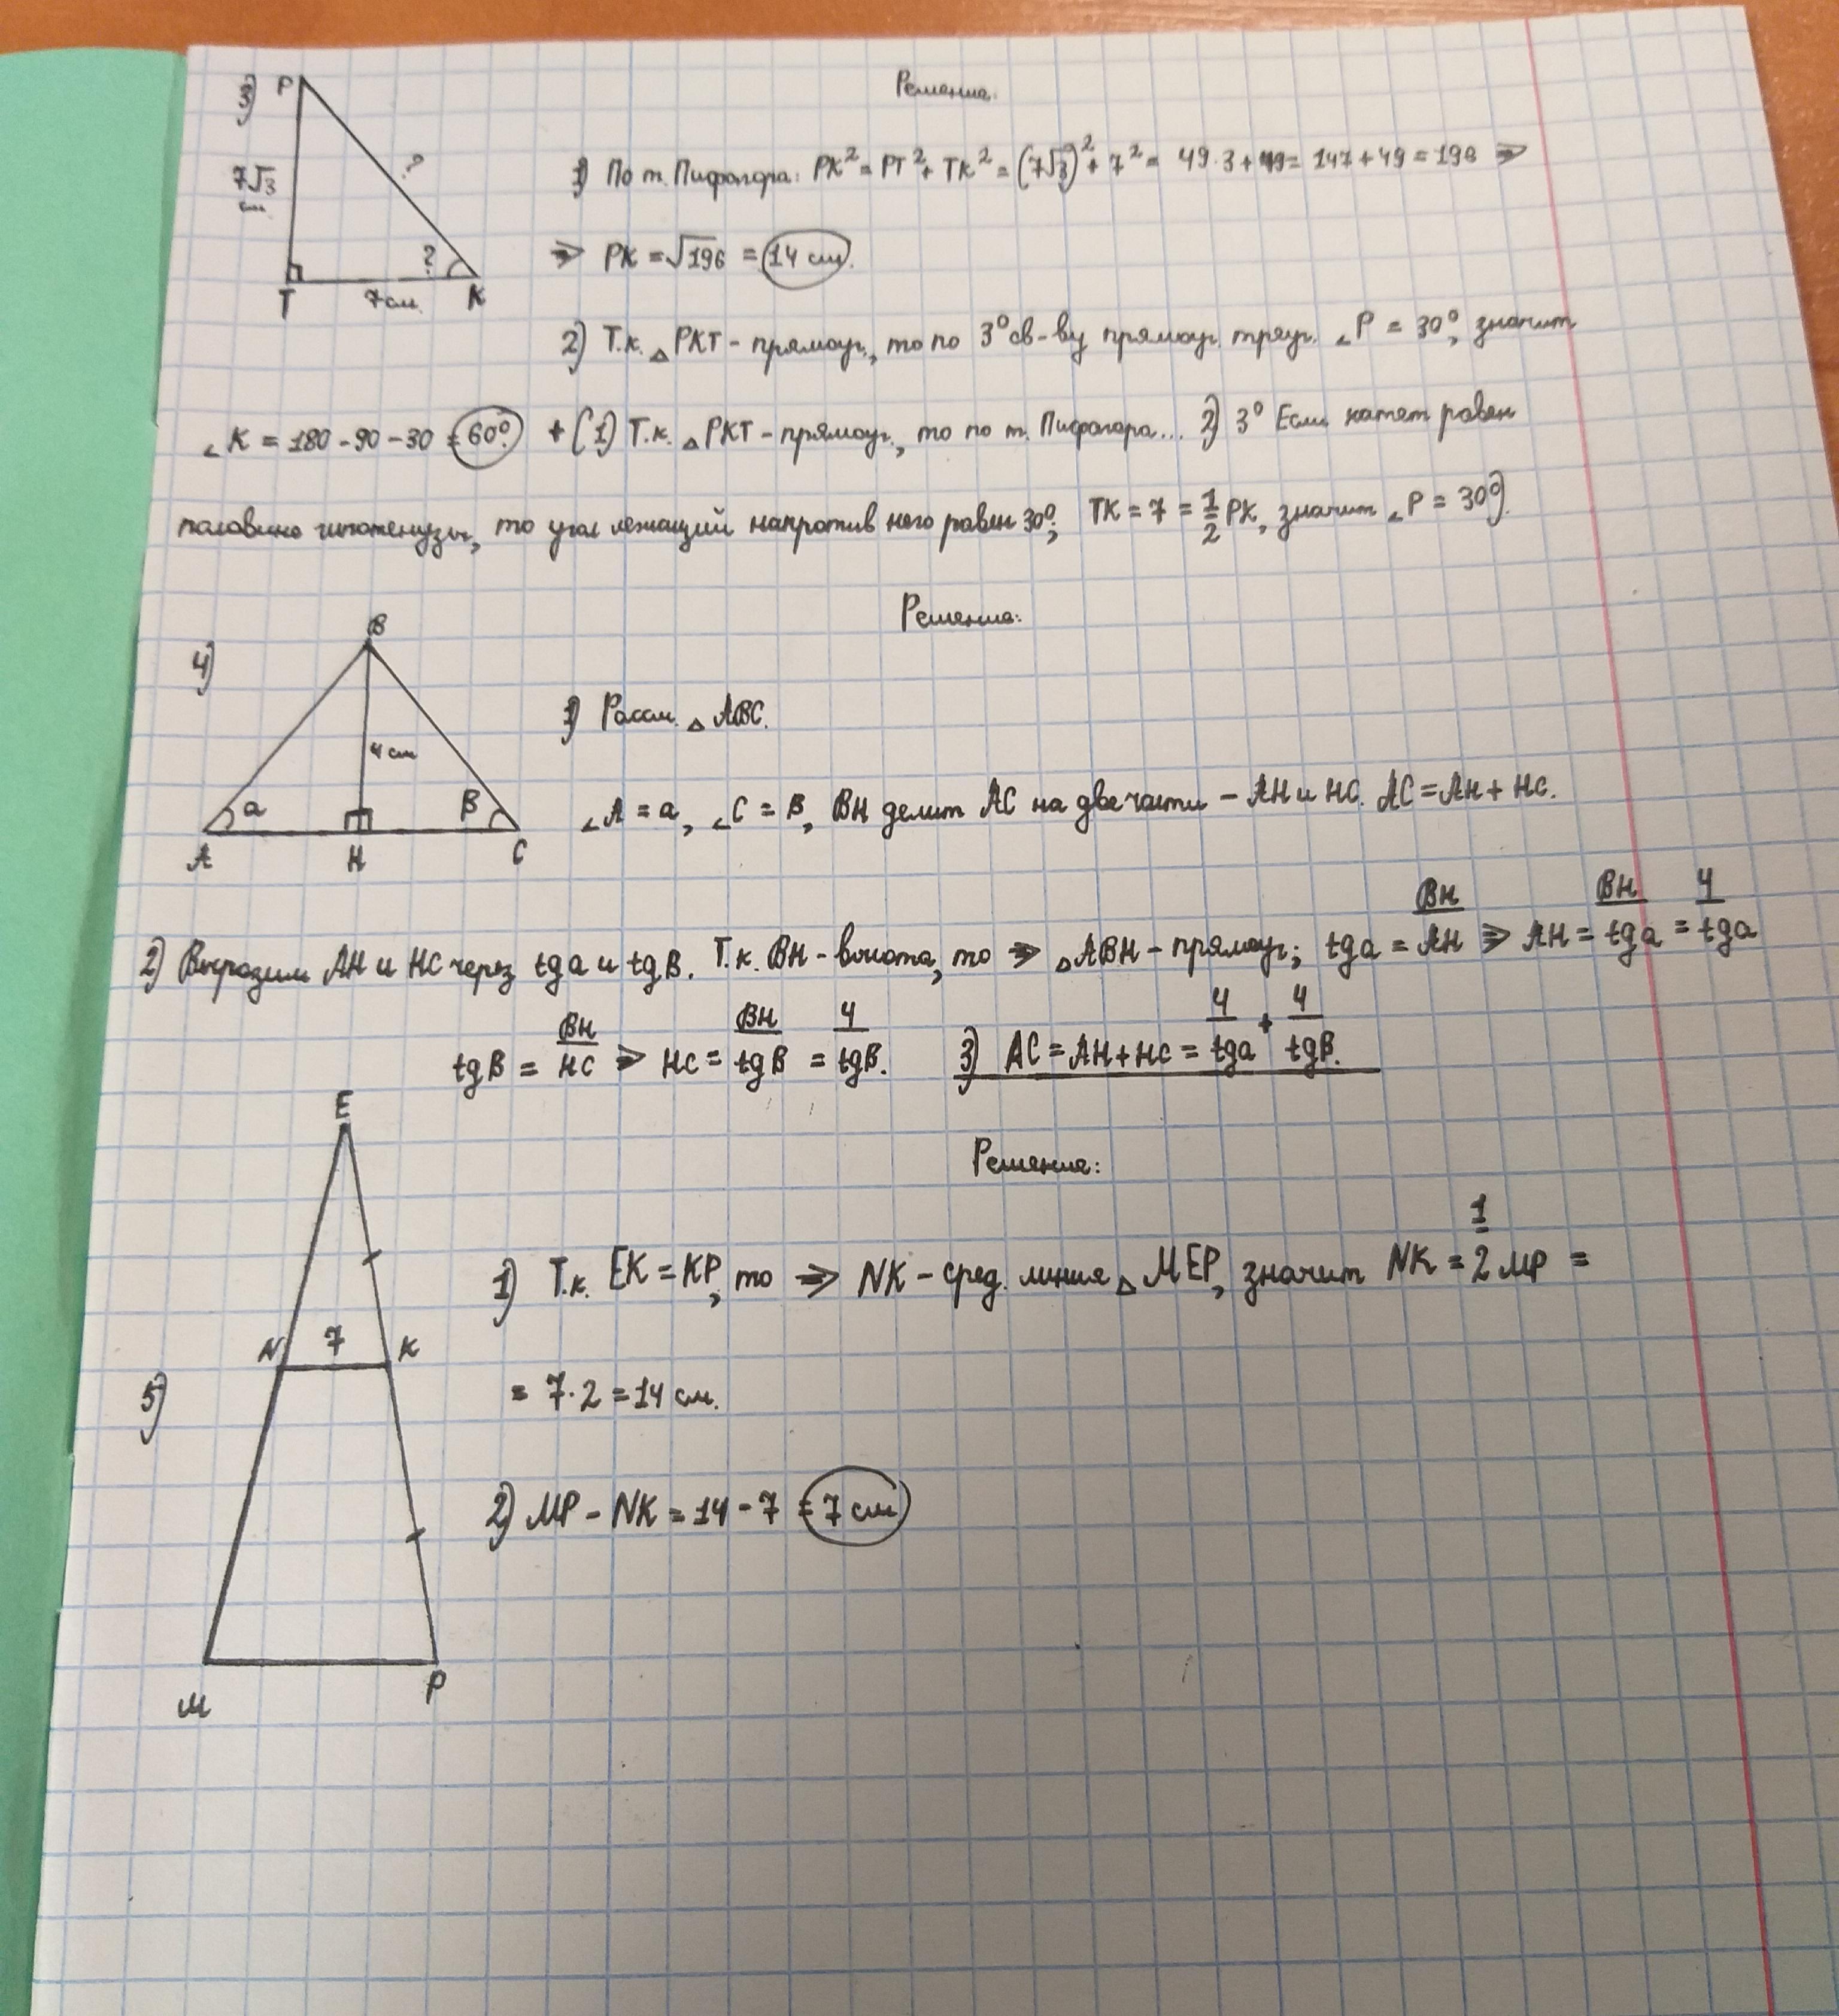 3) P Решение:
7√3 см ? ? T 7см K
1) По т. Пифагора: PK² = PT² + TK² = (7√3)² + 7² = 49·3+49= 147+49=196 ⇒
⇒ PK = √196 = 14 см.
2) Т.к. △PKT – прямоуг., то по 3° св-ву прямоуг. треуг. ∠P = 30°, значит
∠K = 180-90-30 = 60° + (1) Т.к. △PKT – прямоуг., то по т. Пифагора... 2) 3° Если катет равен
половине гипотенузы, то угол лежащий напротив него равен 30°; TK = 7 = 1/2 PK, значит ∠P = 30°).
Решение:
4) B 4 см a B A H C
1) Рассм. △ABC.
∠A = a, ∠C = B, BH делит AC на две части – AH и HC. AC = AH + HC.
2) Выразим AH и HC через tga и tgB. Т.к. BH – высота, то ⇒ △ABH – прямоуг.; tga = BH/AH ⇒ AH = BH/tga = 4/tga
tgB = BH/HC ⇒ HC = BH/tgB = 4/tgB. 3) AC = AH + HC = 4/tga + 4/tgB.
Решение:
5) E N 7 K M P
1) Т.к. EK = KP, то ⇒ NK – сред. линия △MEP, значит NK = 1/2 MP =
= 7·2 = 14 см.
2) MP – NK = 14 - 7 = 7 см